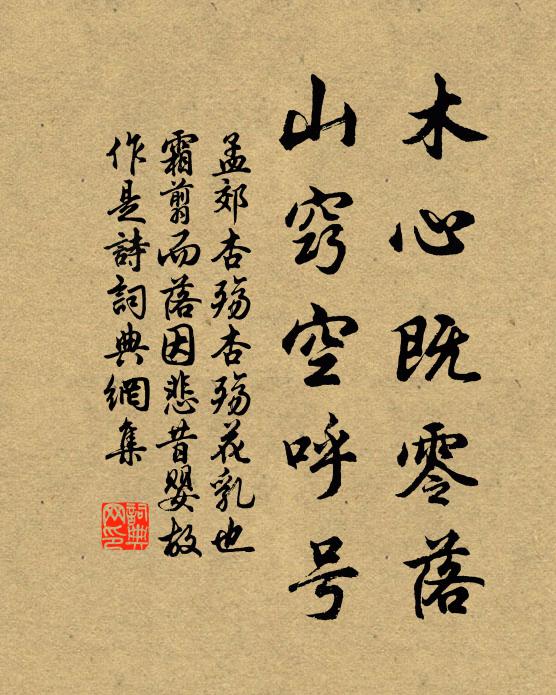 木心既零落
山窍空呼号
孟郊杏殇杏殇花乳也
霜翦而落因悲昔婴故
作是詩詞典網集
詞典
网印